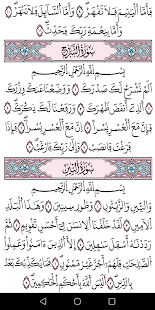 فَأَمَّا ٱلْيَتِيمَ فَلَا تَقْهَرْ ۝ وَأَمَّا ٱلسَّآئِلَ فَلَا تَنْهَرْ ۝
وَأَمَّا بِنِعْمَةِ رَبِّكَ فَحَدِّثْ ۝
سُورَةُ الشَّرْحِ
بِسْمِ ٱللَّهِ ٱلرَّحْمَٰنِ ٱلرَّحِيمِ
أَلَمْ نَشْرَحْ لَكَ صَدْرَكَ ۝ وَوَضَعْنَا عَنكَ وِزْرَكَ ۝
ٱلَّذِىٓ أَنقَضَ ظَهْرَكَ ۝ وَرَفَعْنَا لَكَ ذِكْرَكَ ۝
فَإِنَّ مَعَ ٱلْعُسْرِ يُسْرًا ۝ إِنَّ مَعَ ٱلْعُسْرِ يُسْرًا ۝ فَإِذَا
فَرَغْتَ فَٱنصَبْ ۝ وَإِلَىٰ رَبِّكَ فَٱرْغَب ۝
سُورَةُ التِّينِ
بِسْمِ ٱللَّهِ ٱلرَّحْمَٰنِ ٱلرَّحِيمِ
وَٱلتِّينِ وَٱلزَّيْتُونِ ۝ وَطُورِ سِينِينَ ۝ وَهَٰذَا
ٱلْبَلَدِ ٱلْأَمِينِ ۝ لَقَدْ خَلَقْنَا ٱلْإِنسَٰنَ فِىٓ أَحْسَنِ تَقْوِيمٍ ۝ ثُمَّ
رَدَدْنَٰهُ أَسْفَلَ سَٰفِلِينَ ۝ إِلَّا ٱلَّذِينَ ءَامَنُوا۟ وَعَمِلُوا۟
ٱلصَّٰلِحَٰتِ فَلَهُمْ أَجْرٌ غَيْرُ مَمْنُونٍ ۝ فَمَا يُكَذِّبُكَ بَعْدُ
بِٱلدِّينِ ۝ أَلَيْسَ ٱللَّهُ بِأَحْكَمِ ٱلْحَٰكِمِينَ ۝